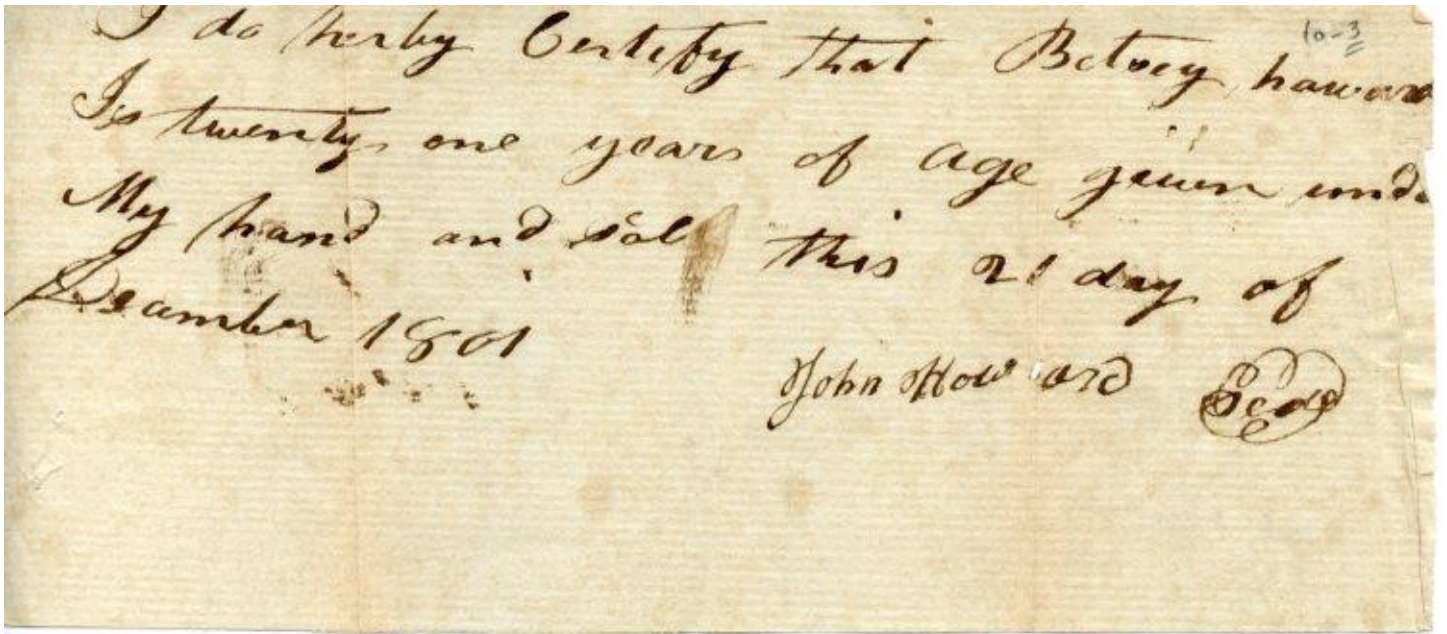 10-3
I do herby Certify that Betsey haward
Is twenty one years of age given unde
My hand and sale this 21 day of
Deamber 1801
John Howard Seal